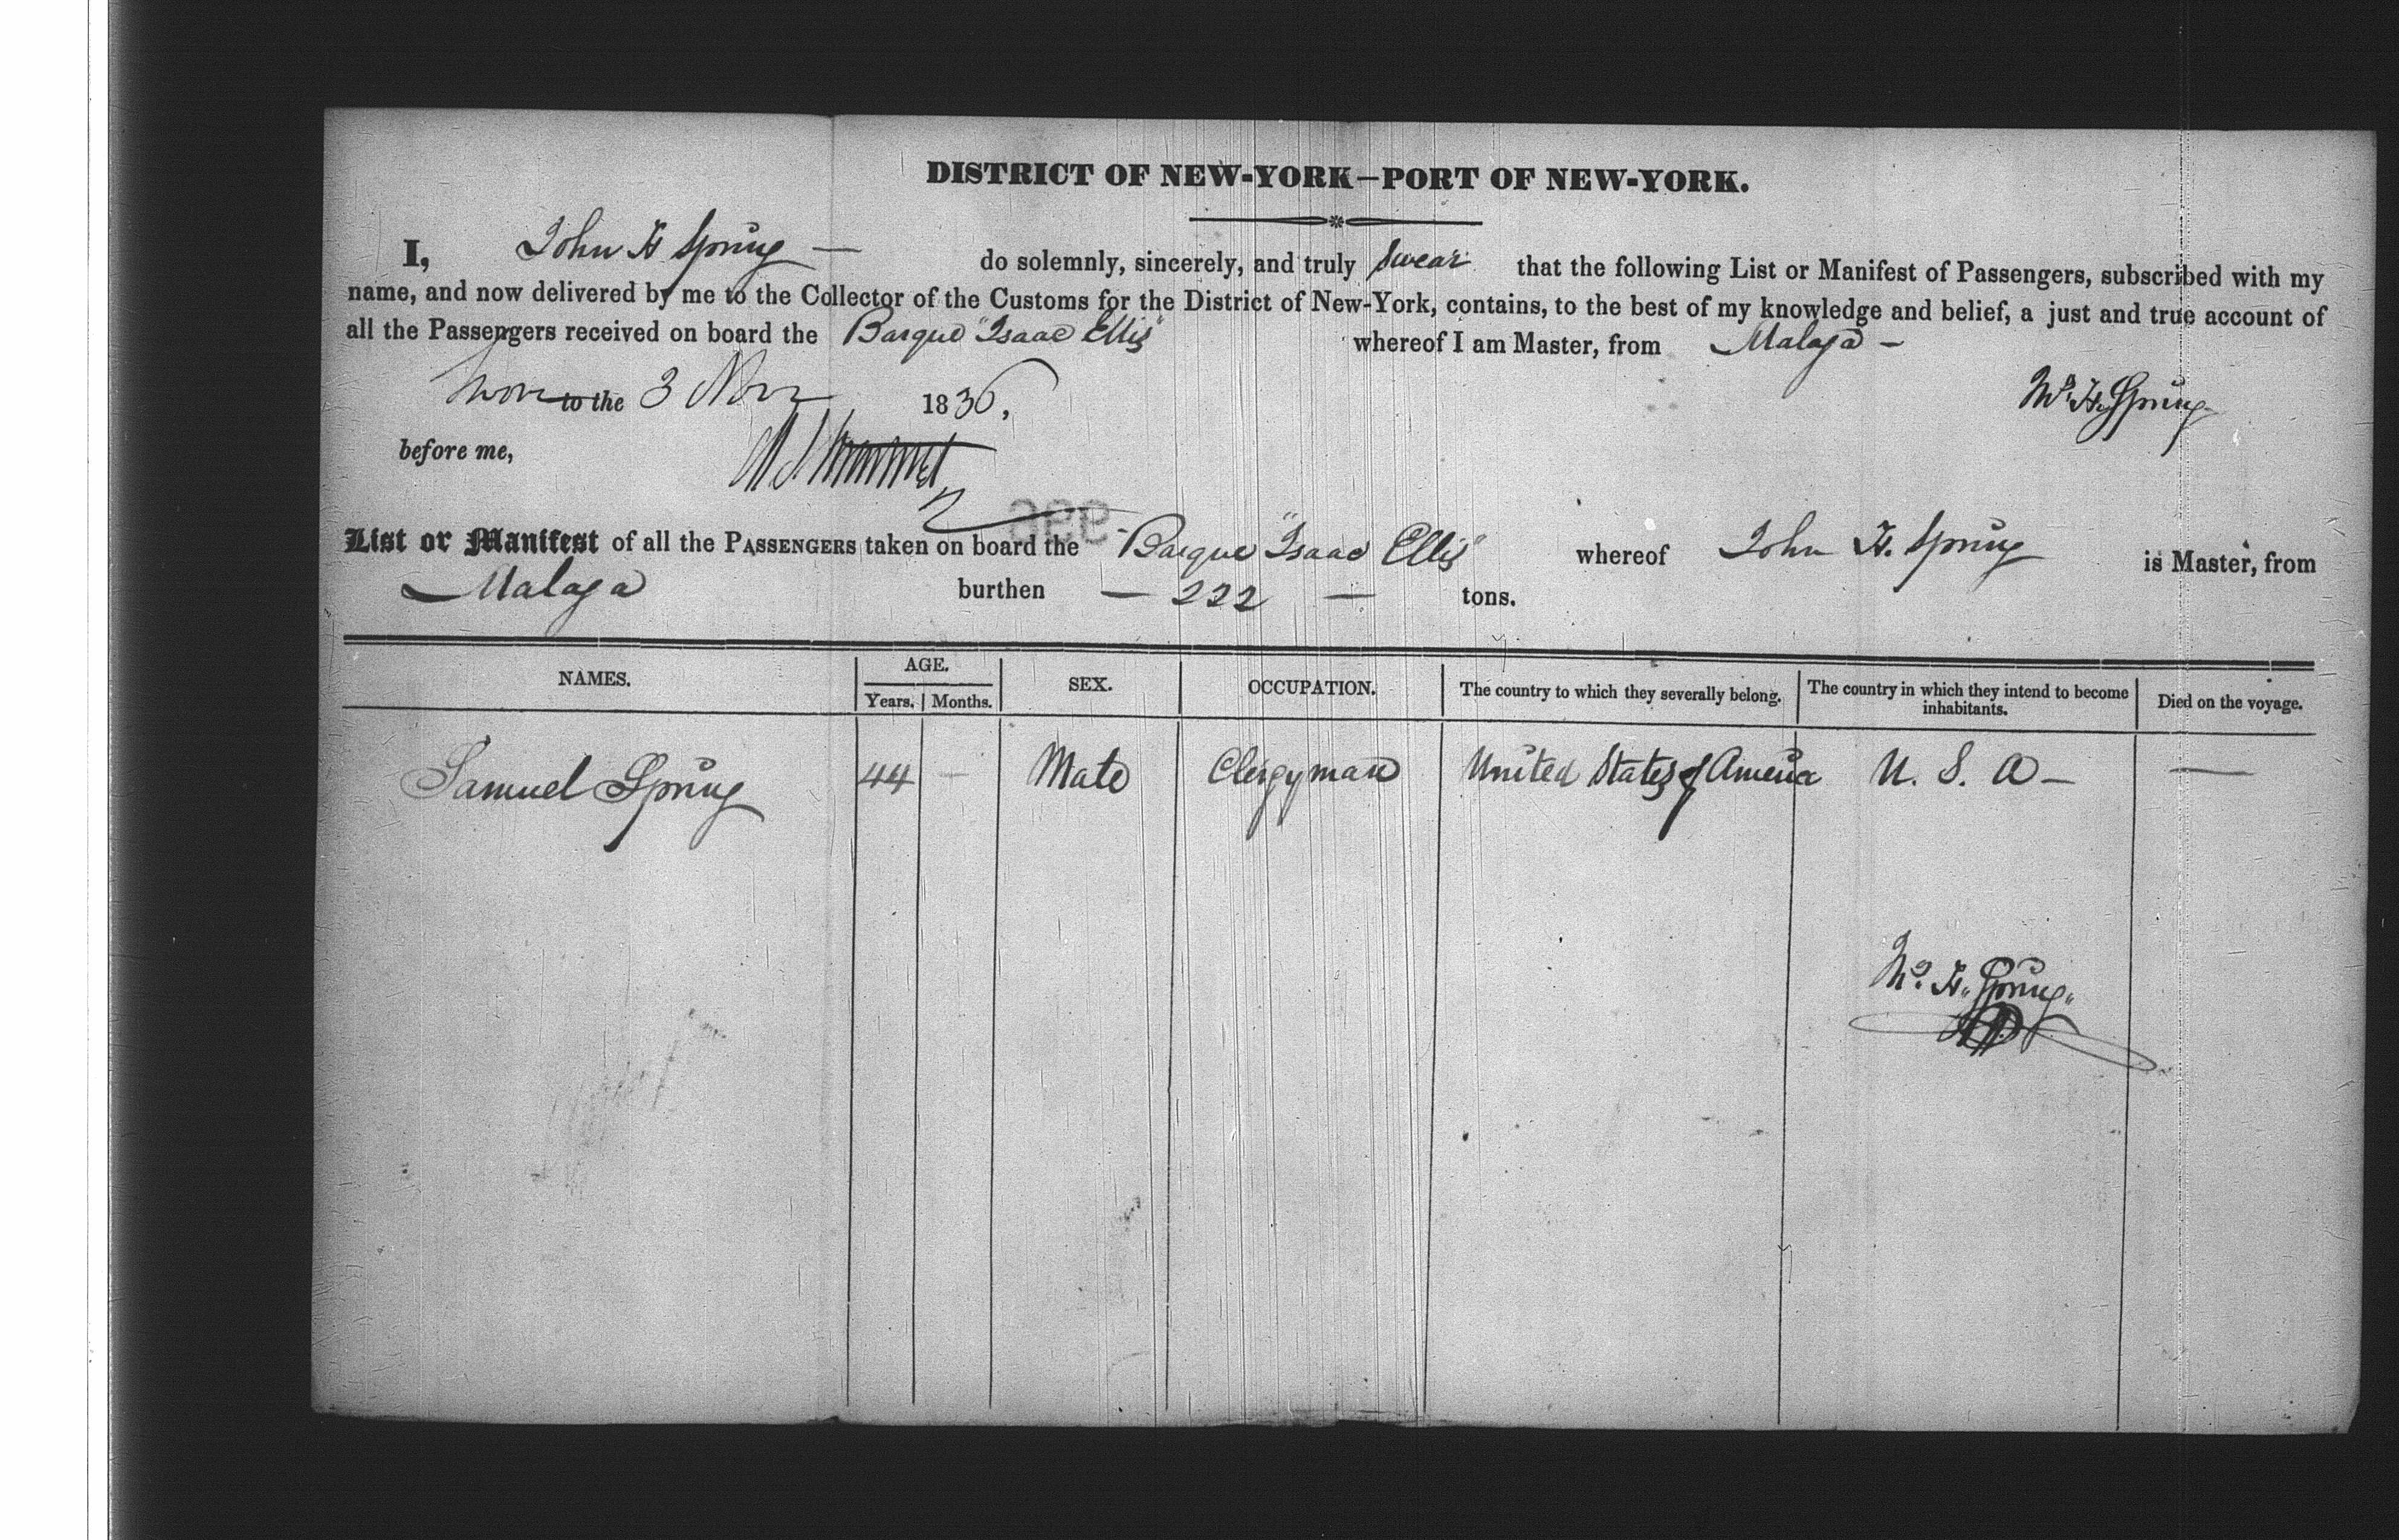 DISTRICT OF NEW-YORK—PORT OF NEW-YORK.
I, John H Spring — do solemnly, sincerely, and truly swear that the following List or Manifest of Passengers, subscribed with my
name, and now delivered by me to the Collector of the Customs for the District of New-York, contains, to the best of my knowledge and belief, a just and true account of
all the Passengers received on board the Barque "Isaac Ellis" whereof I am Master, from Malaga —
Sworn to the 3 Nov 1836, H. Spring
before me,
996
List or Manifest of all the PASSENGERS taken on board the Barque "Isaac Ellis" whereof John H. Spring is Master, from
Malaga burthen — 222 — tons.
NAMES. AGE. SEX. OCCUPATION. The country to which they severally belong. The country in which they intend to become inhabitants. Died on the voyage.
Years. Months.
Samuel Spring 44 — Male Clergyman United States of America U. S. A — —
H. Spring